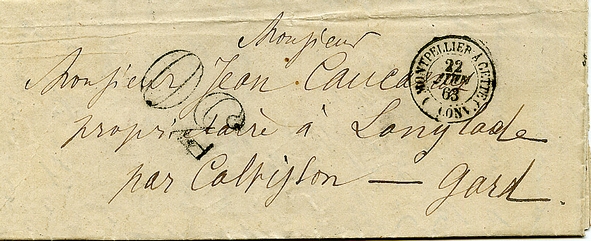 Monsieur
Monsieur Jean
propriétaire à Langlade
par Calvisson — Gard
MONTPELLIER A CETTE
22
63
CONV